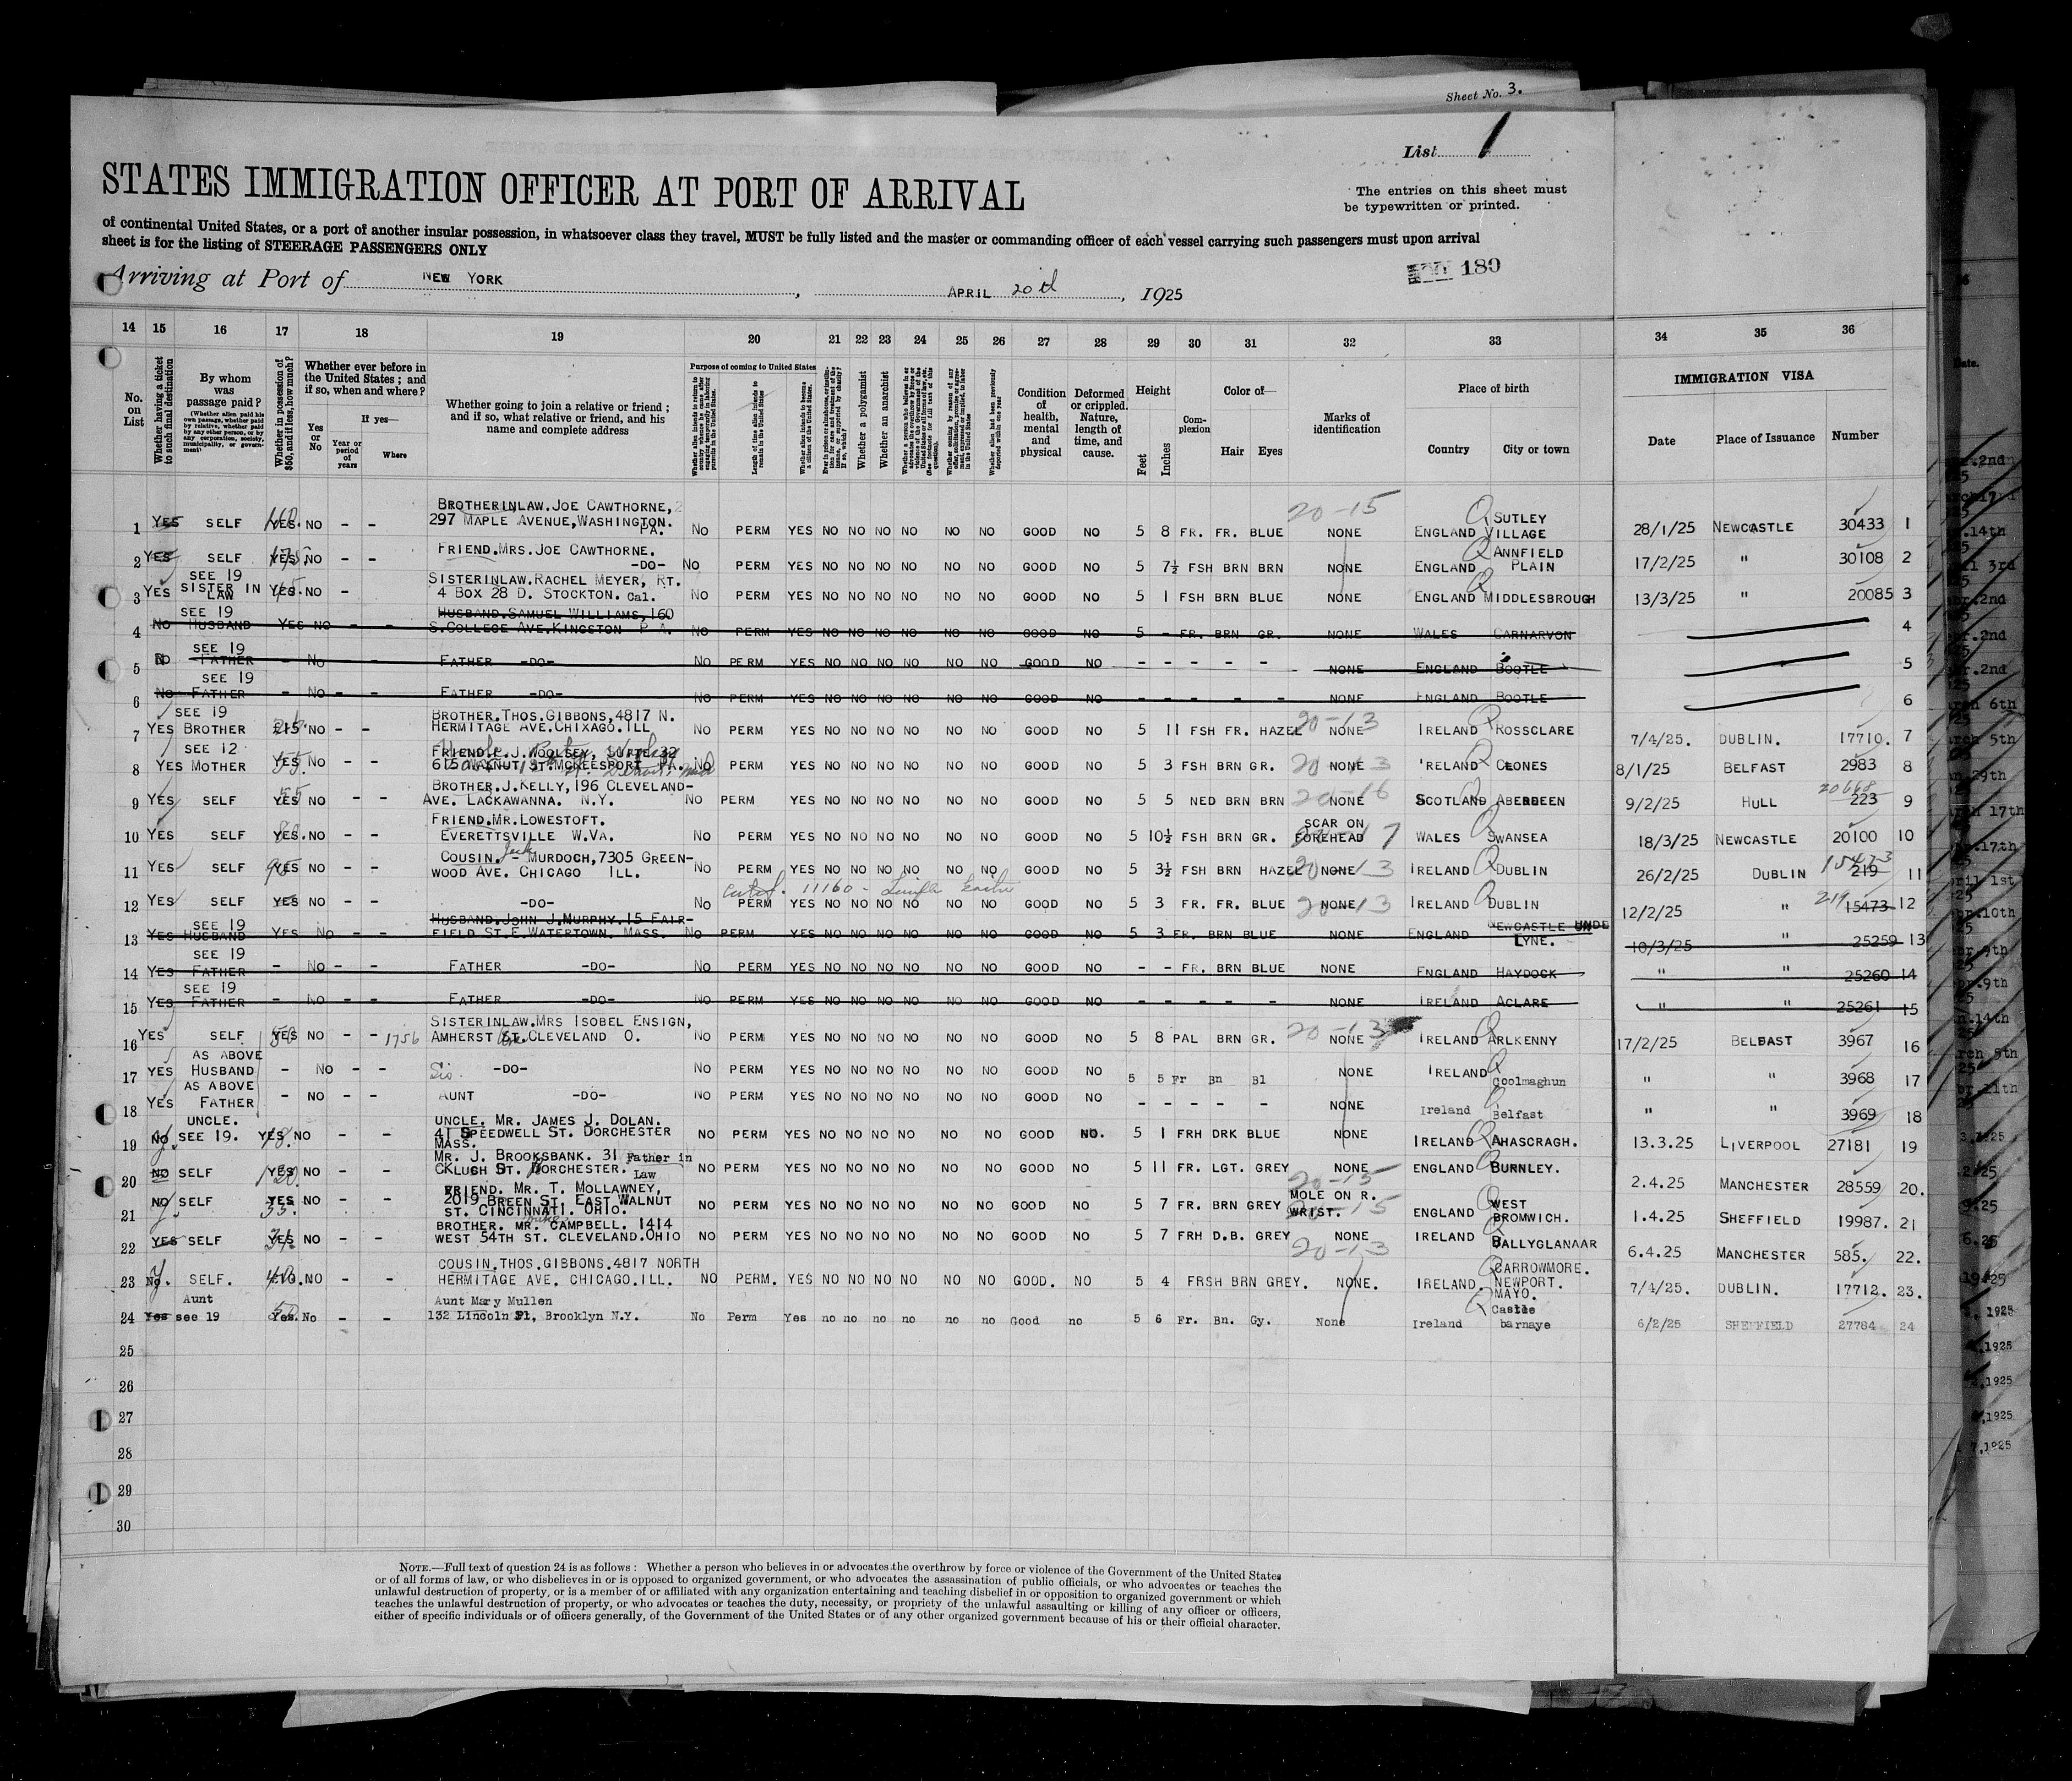 Sheet No. 3.
List 1
STATES IMMIGRATION OFFICER AT PORT OF ARRIVAL
The entries on this sheet must
be typewritten or printed.
of continental United States, or a port of another insular possession, in whatsoever class they travel, MUST be fully listed and the master or commanding officer of each vessel carrying such passengers must upon arrival
sheet is for the listing of STEERAGE PASSENGERS ONLY
Arriving at Port of NEW YORK, APRIL 20th, 1925
180
14 15 16 17 18 19 20 21 22 23 24 25 26 27 28 29 30 31 32 33 34 35 36
No. on List
Whether having a ticket to such final destination
By whom was passage paid?
Whether in possession of $50, and if less, how much?
Whether ever before in the United States; and if so, when and where?
Yes or No
If yes—
Year or period of years
Where
Whether going to join a relative or friend; and if so, what relative or friend, and his name and complete address
Purpose of coming to United States
Length of time alien intends to remain in the United States
Whether a polygamist
Whether an anarchist
Condition of health, mental and physical
Deformed or crippled. Nature, length of time, and cause.
Height
Feet
Inches
Complexion
Color of—
Hair Eyes
Marks of identification
Place of birth
Country City or town
IMMIGRATION VISA
Date Place of Issuance Number
BROTHERINLAW. JOE CAWTHORNE, 20-15 SUTLEY
1 YES SELF YES. NO - - 297 MAPLE AVENUE, WASHINGTON. PA. NO PERM YES NO NO NO NO NO NO GOOD NO 5 8 FR. FR. BLUE NONE ENGLAND VILLAGE 28/1/25 NEWCASTLE 30433 1
FRIEND. MRS. JOE CAWTHORNE. ANNFIELD
2 YES SELF YES. NO - - -DO- NO PERM YES NO NO NO NO NO NO GOOD NO 5 7½ FSH BRN BRN NONE ENGLAND PLAIN 17/2/25 " 30108 2
SEE 19 SISTERINLAW. RACHEL MEYER, RT.
3 YES SISTER IN LAW YES. NO - 4 BOX 28 D. STOCKTON. Cal. NO PERM YES NO NO NO NO NO NO GOOD NO 5 1 FSH BRN BLUE NONE ENGLAND MIDDLESBROUGH 13/3/25 " 20085 3
SEE 19 HUSBAND. SAMUEL WILLIAMS, 160
4 NO HUSBAND YES NO - - S. COLLEGE AVE. KINGSTON P A. NO PERM YES NO NO NO NO NO NO GOOD NO 5 - FR. BRN GR. NONE WALES CARNARVON 4
SEE 19
5 NO FATHER - NO - FATHER -DO- NO PERM YES NO NO NO NO NO NO GOOD NO - - - - - NONE ENGLAND BOOTLE 5
SEE 19
6 NO FATHER - NO - - FATHER -DO- NO PERM YES NO NO NO NO NO NO GOOD NO - - - - - NONE ENGLAND BOOTLE 6
SEE 19 BROTHER. THOS. GIBBONS, 4817 N. 20-13
7 YES BROTHER NO - - HERMITAGE AVE. CHIXAGO. ILL NO PERM YES NO NO NO NO NO NO GOOD NO 5 11 FSH FR. HAZEL NONE IRELAND ROSSCLARE 7/4/25. DUBLIN. 17710. 7
SEE 12 FRIEND. F. J. WOOLSEY, SUITE 32
8 YES MOTHER YES NO - - 615 WALNUT ST. MCKEESPORT PA. NO PERM YES NO NO NO NO NO NO GOOD NO 5 3 FSH BRN GR. 20 NONE 13 IRELAND CLONES 8/1/25 BELFAST 2983 8
BROTHER. J. KELLY, 196 CLEVELAND- 20668
9 YES SELF YES NO - - AVE. LACKAWANNA. N.Y. NO PERM YES NO NO NO NO NO NO GOOD NO 5 5 NED BRN BRN 20-16 NONE SCOTLAND ABERDEEN 9/2/25 HULL 223 9
FRIEND. MR. LOWESTOFT. SCAR ON
10 YES SELF YES. NO - - EVERETTSVILLE W.VA. NO PERM YES NO NO NO NO NO NO GOOD NO 5 10½ FSH BRN GR. FOREHEAD WALES SWANSEA 18/3/25 NEWCASTLE 20100 10
COUSIN. Jack - MURDOCH, 7305 GREEN- 15473
11 YES SELF YES NO - - WOOD AVE. CHICAGO ILL. NO PERM YES NO NO NO NO NO NO GOOD NO 5 3½ FSH BRN HAZEL 20 NONE 13 IRELAND DUBLIN 26/2/25 DUBLIN 219 11
12 YES SELF YES NO - - -DO- NO PERM YES NO NO NO NO NO NO GOOD NO 5 3 FR. FR. BLUE 20 NONE 13 IRELAND DUBLIN 12/2/25 " 219 15473 12
SEE 19 HUSBAND. JOHN J. MURPHY. 15 FAIR- NEWCASTLE UNDE
13 YES HUSBAND YES NO - - FIELD ST. E. WATERTOWN. MASS. NO PERM YES NO NO NO NO NO NO GOOD NO 5 3 FR. BRN BLUE NONE ENGLAND LYNE. 10/3/25 " 25259 13
SEE 19
14 YES FATHER - NO - - FATHER -DO- NO PERM YES NO NO NO NO NO NO GOOD NO - - FR. BRN BLUE NONE ENGLAND HAYDOCK " " 25260 14
SEE 19
15 YES FATHER - NO - - FATHER -DO- NO PERM YES NO NO NO NO NO NO GOOD NO - - - - - NONE IRELAND ACLARE " " 25261 15
SISTERINLAW. MRS ISOBEL ENSIGN,
16 YES SELF YES NO - - 1756 AMHERST ST. CLEVELAND O. NO PERM YES NO NO NO NO NO NO GOOD NO 5 8 PAL BRN GR. 20-13 NONE IRELAND ARLKENNY 17/2/25 BELFAST 3967 16
AS ABOVE
17 YES HUSBAND - NO - - Sis. -DO- NO PERM YES NO NO NO NO NO NO GOOD NO 5 5 Fr Bn Bl NONE IRELAND Coolmaghun " " 3968 17
AS ABOVE
18 YES FATHER - NO - - AUNT -DO- NO PERM YES NO NO NO NO NO NO GOOD NO - - - - - NONE Ireland Belfast " " 3969 18
UNCLE. UNCLE. MR. JAMES J. DOLAN.
19 NO SEE 19. YES. NO - - 41 SPEEDWELL ST. DORCHESTER MASS. NO PERM YES NO NO NO NO NO NO GOOD NO. 5 1 FRH DRK BLUE NONE IRELAND AHASCRAGH. 13.3.25 LIVERPOOL 27181 19
MR. J. BROOKSBANK. 31 Father in Law
20 NO SELF YES NO - - ST. DORCHESTER. NO PERM YES NO NO NO NO NO NO GOOD NO 5 11 FR. LGT. GREY NONE ENGLAND BURNLEY. 2.4.25 MANCHESTER 28559 20.
FRIEND. MR. T. MOLLAWNEY, 20-15 MOLE ON R.
21 NO SELF YES NO - - 2019 BREEN ST. EAST WALNUT ST. CINCINNATI. OHIO. NO PERM YES NO NO NO NO NO NO GOOD NO 5 7 FR. BRN GREY WRIST. ENGLAND WEST BROMWICH. 1.4.25 SHEFFIELD 19987. 21
BROTHER. MR. CAMPBELL. 1414
22 YES SELF YES NO - - WEST 54TH ST. CLEVELAND. OHIO NO PERM YES NO NO NO NO NO NO GOOD NO 5 7 FRH D.B. GREY NONE 20-13 IRELAND BALLYGLANAAR 6.4.25 MANCHESTER 585. 22.
COUSIN. THOS. GIBBONS. 4817 NORTH CARROWMORE.
23 NO. SELF. NO - - HERMITAGE AVE. CHICAGO. ILL. NO PERM. YES NO NO NO NO NO NO GOOD. NO 5 4 FRSH BRN GREY. NONE. IRELAND. NEWPORT. MAYO. 7/4/25. DUBLIN. 17712. 23.
Aunt Aunt Mary Mullen Castle
24 Yes see 19 Yes. No - - 132 Lincoln Pl, Brooklyn N.Y. No Perm Yes no no no no no no Good no 5 6 Fr. Bn. Gy. None Ireland barnaye 6/2/25 SHEFFIELD 27784 24
25
26
27
28
29
30
NOTE.—Full text of question 24 is as follows: Whether a person who believes in or advocates the overthrow by force or violence of the Government of the United States
or of all forms of law, or who disbelieves in or is opposed to organized government, or who advocates the assassination of public officials, or who advocates or teaches the
unlawful destruction of property, or is a member of or affiliated with any organization entertaining and teaching disbelief in or opposition to organized government or which
teaches the unlawful destruction of property, or who advocates or teaches the duty, necessity, or propriety of the unlawful assaulting or killing of any officer or officers,
either of specific individuals or of officers generally, of the Government of the United States or of any other organized government because of his or their official character.